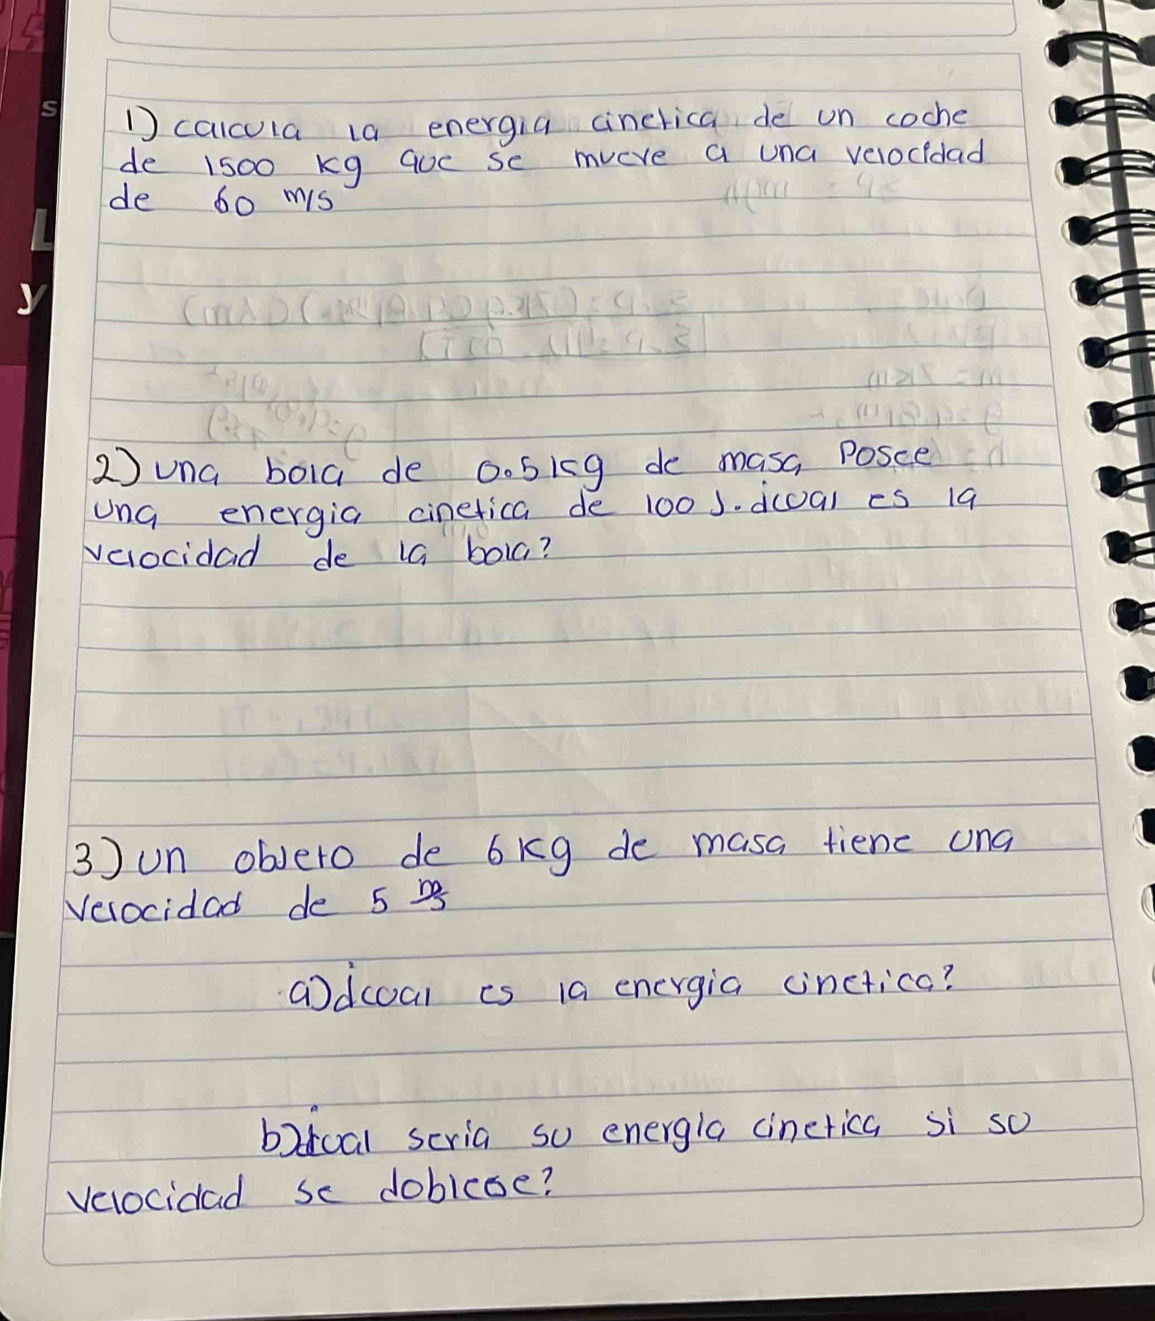 1) calcula la energia cinetica de un coche
de 1500 kg que se mueve a una velocidad
de 60 m/s
2) una bola de 0.5 kg de masa Posee
una energia cinetica de 100 J. ¿cual es la
velocidad de la bola?
3) un objeto de 6 kg de masa tiene una
velocidad de 5 m/s
a) ¿cual es la energia cinetica?
b) ¿cual seria su energia cinetica si su
velocidad se doblase?
S
L
y